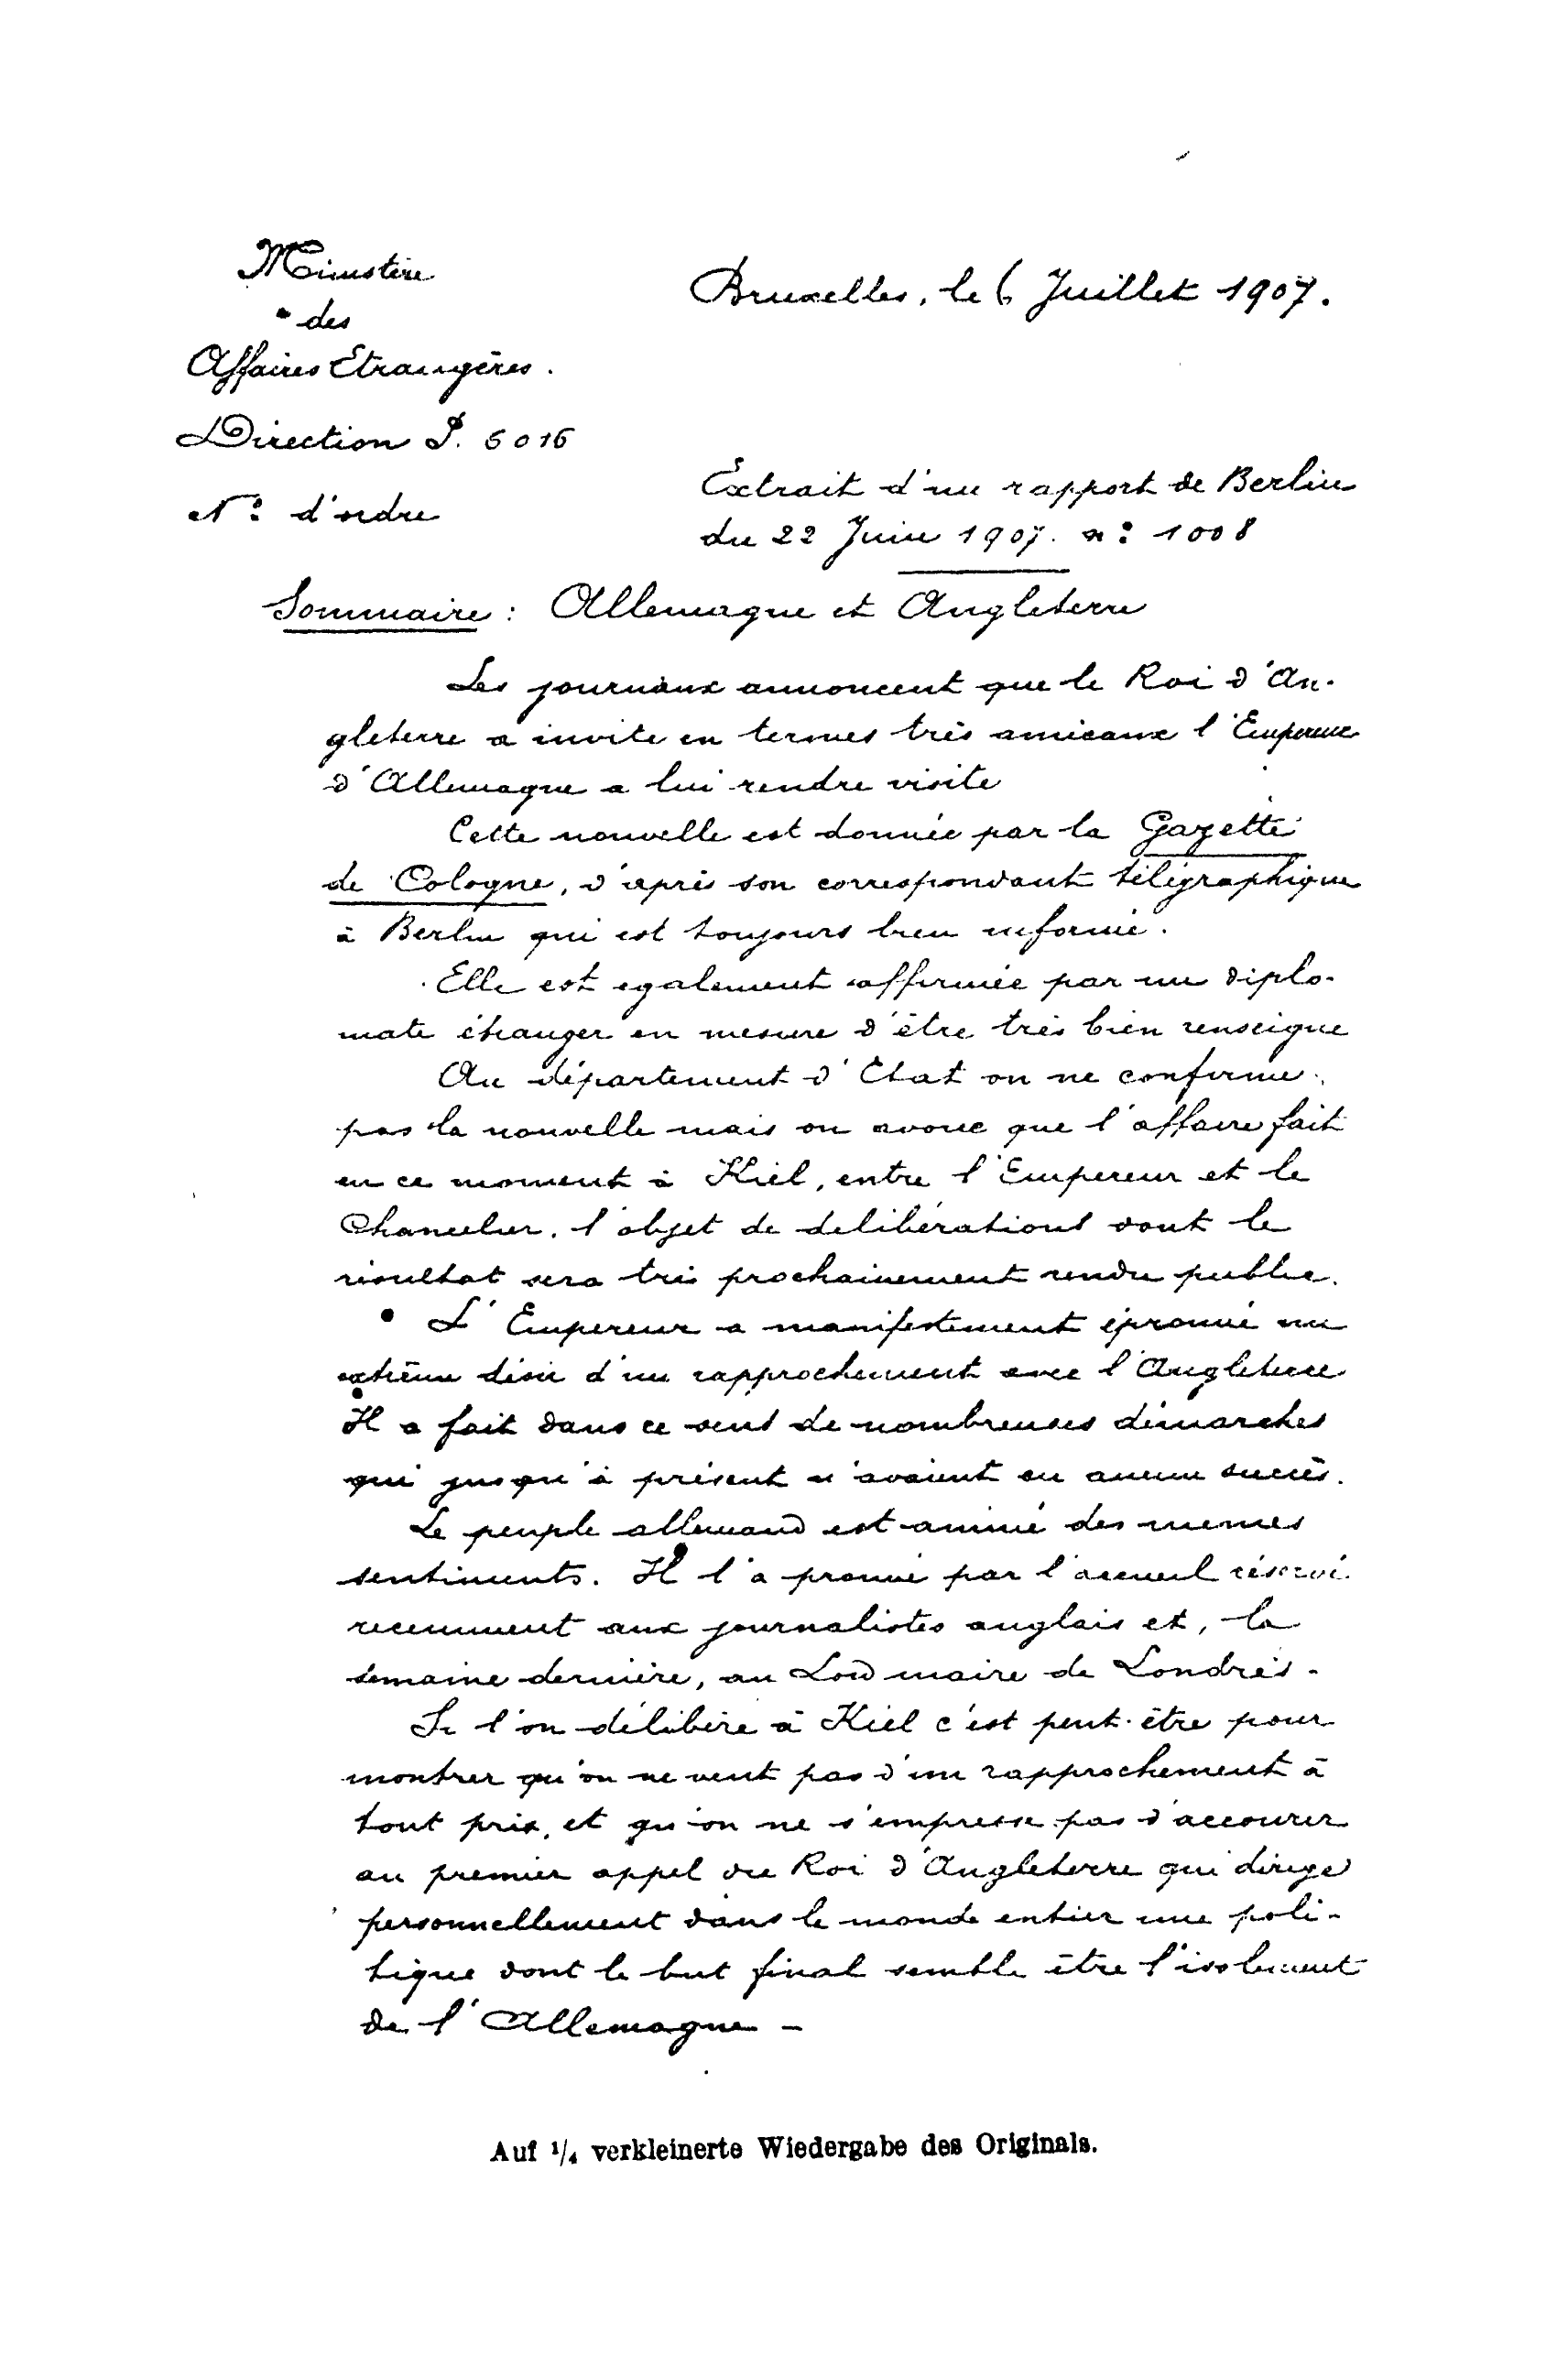 Ministère
des
Affaires Etrangères.
Direction P. 5016
N° d'ordre
Bruxelles, le 6 Juillet 1907.
Extrait d'un rapport de Berlin
du 22 Juin 1907. n° 1008
Sommaire : Allemagne et Angleterre
Les journaux annoncent que le Roi d'An-
gleterre a invité en termes très amicaux l'Empereur
d'Allemagne a lui rendre visite
Cette nouvelle est donnée par la Gazette
de Cologne, d'après son correspondant télégraphique
à Berlin qui est toujours bien informé.
Elle est egalement affirmée par un diplo-
mate étranger en mesure d'être très bien renseigne
Au département d'Etat on ne confirme
pas la nouvelle mais on avoue que l'affaire fait
en ce moment à Kiel, entre l'Empereur et le
Chancelier, l'objet de delibérations dont le
résultat sera très prochainement rendu public.
L'Empereur a manifestement éprouvé un
extrême désir d'un rapprochement avec l'Angleterre
Il a fait dans ce sens de nombreuses démarches
qui jusqu'à présent n'avaient eu aucun succès.
Le peuple allemand est animé des memes
sentiments. Il l'a prouvé par l'accueil réservé
recemment aux journalistes anglais et, la
semaine dernière, au Lord maire de Londres.
Si l'on délibère à Kiel c'est peut-être pour
montrer qu'on ne veut pas d'un rapprochement à
tout prix, et qu'on ne s'empresse pas d'accourir
au premier appel du Roi d'Angleterre qui dirige
personnellement dans le monde entier une poli-
tique dont le but final semble être l'isolement
de l'Allemagne –
Auf 1/4 verkleinerte Wiedergabe des Originals.